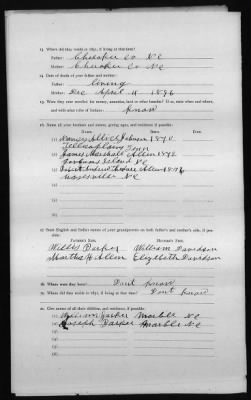 13. Where did they reside in 1851, if living at that time?
Father: Cherokee Co N.C
Mother: Cherokee Co N.C
14. Date of death of your father and mother:
Father: Living
Mother: Dec April 11 1896
15. Were they ever enrolled for money, annuities, land or other benefits? If so, state when and where,
and with what tribe of Indians:
16. Name all your brothers and sisters, giving ages, and residence if possible:
(1) Johnson 1870
Tenn
(2) James Marshall Allen 1872
Island N.C
(3) Allen
N.C
(4)
(5)
(6)
17. State English and Indian names of your grandparents on both father's and mother's side, if possible:
FATHER'S SIDE. MOTHER'S SIDE.
Willis Parker William Davidson
Martha Allen Elizabeth Davidson
18. Where were they born? Dont know
19. Where did they reside in 1851, if living at that time? Dont know
20. Give names of all their children, and residence, if possible:
(1) William Parker Marble N.C
(2) Joseph Parker Marble N.C
(3)
(4)
(5)
(6)